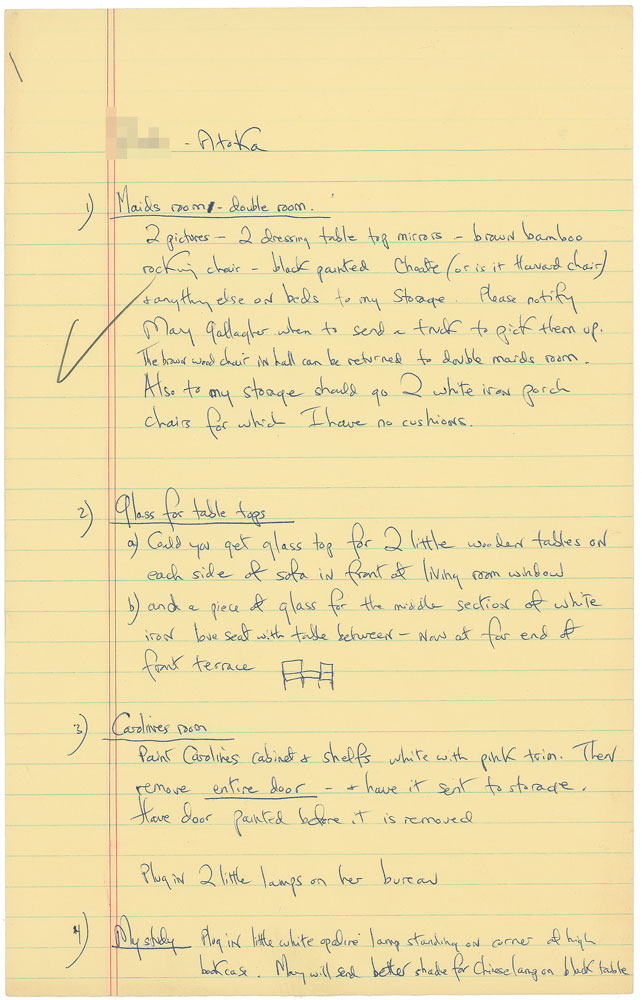 - Atoka
1) Maids room - double room.
2 pictures - 2 dressing table top mirrors - brown bamboo
rocking chair - black painted Choate (or is it Harvard chair)
+ anything else on beds to my storage. Please notify
Mary Gallagher when to send a truck to pick them up.
The brown wood chair in hall can be returned to double maids room.
Also to my storage should go 2 white iron porch
chairs for which I have no cushions.
2) Glass for table tops
a) Could you get glass top for 2 little wooden tables on
each side of sofa in front of living room window
b) and a piece of glass for the middle section of white
iron love seat with table between - now at far end of
front terrace
3) Carolines room
Paint Carolines cabinet + shelfs white with pink trim. Then
remove entire door - + have it sent to storage.
Have door painted before it is removed
Plug in 2 little lamps on her bureau
4) My study Plug in little white opaline lamp standing on corner of high
bookcase. Mary will send better shade for on black table